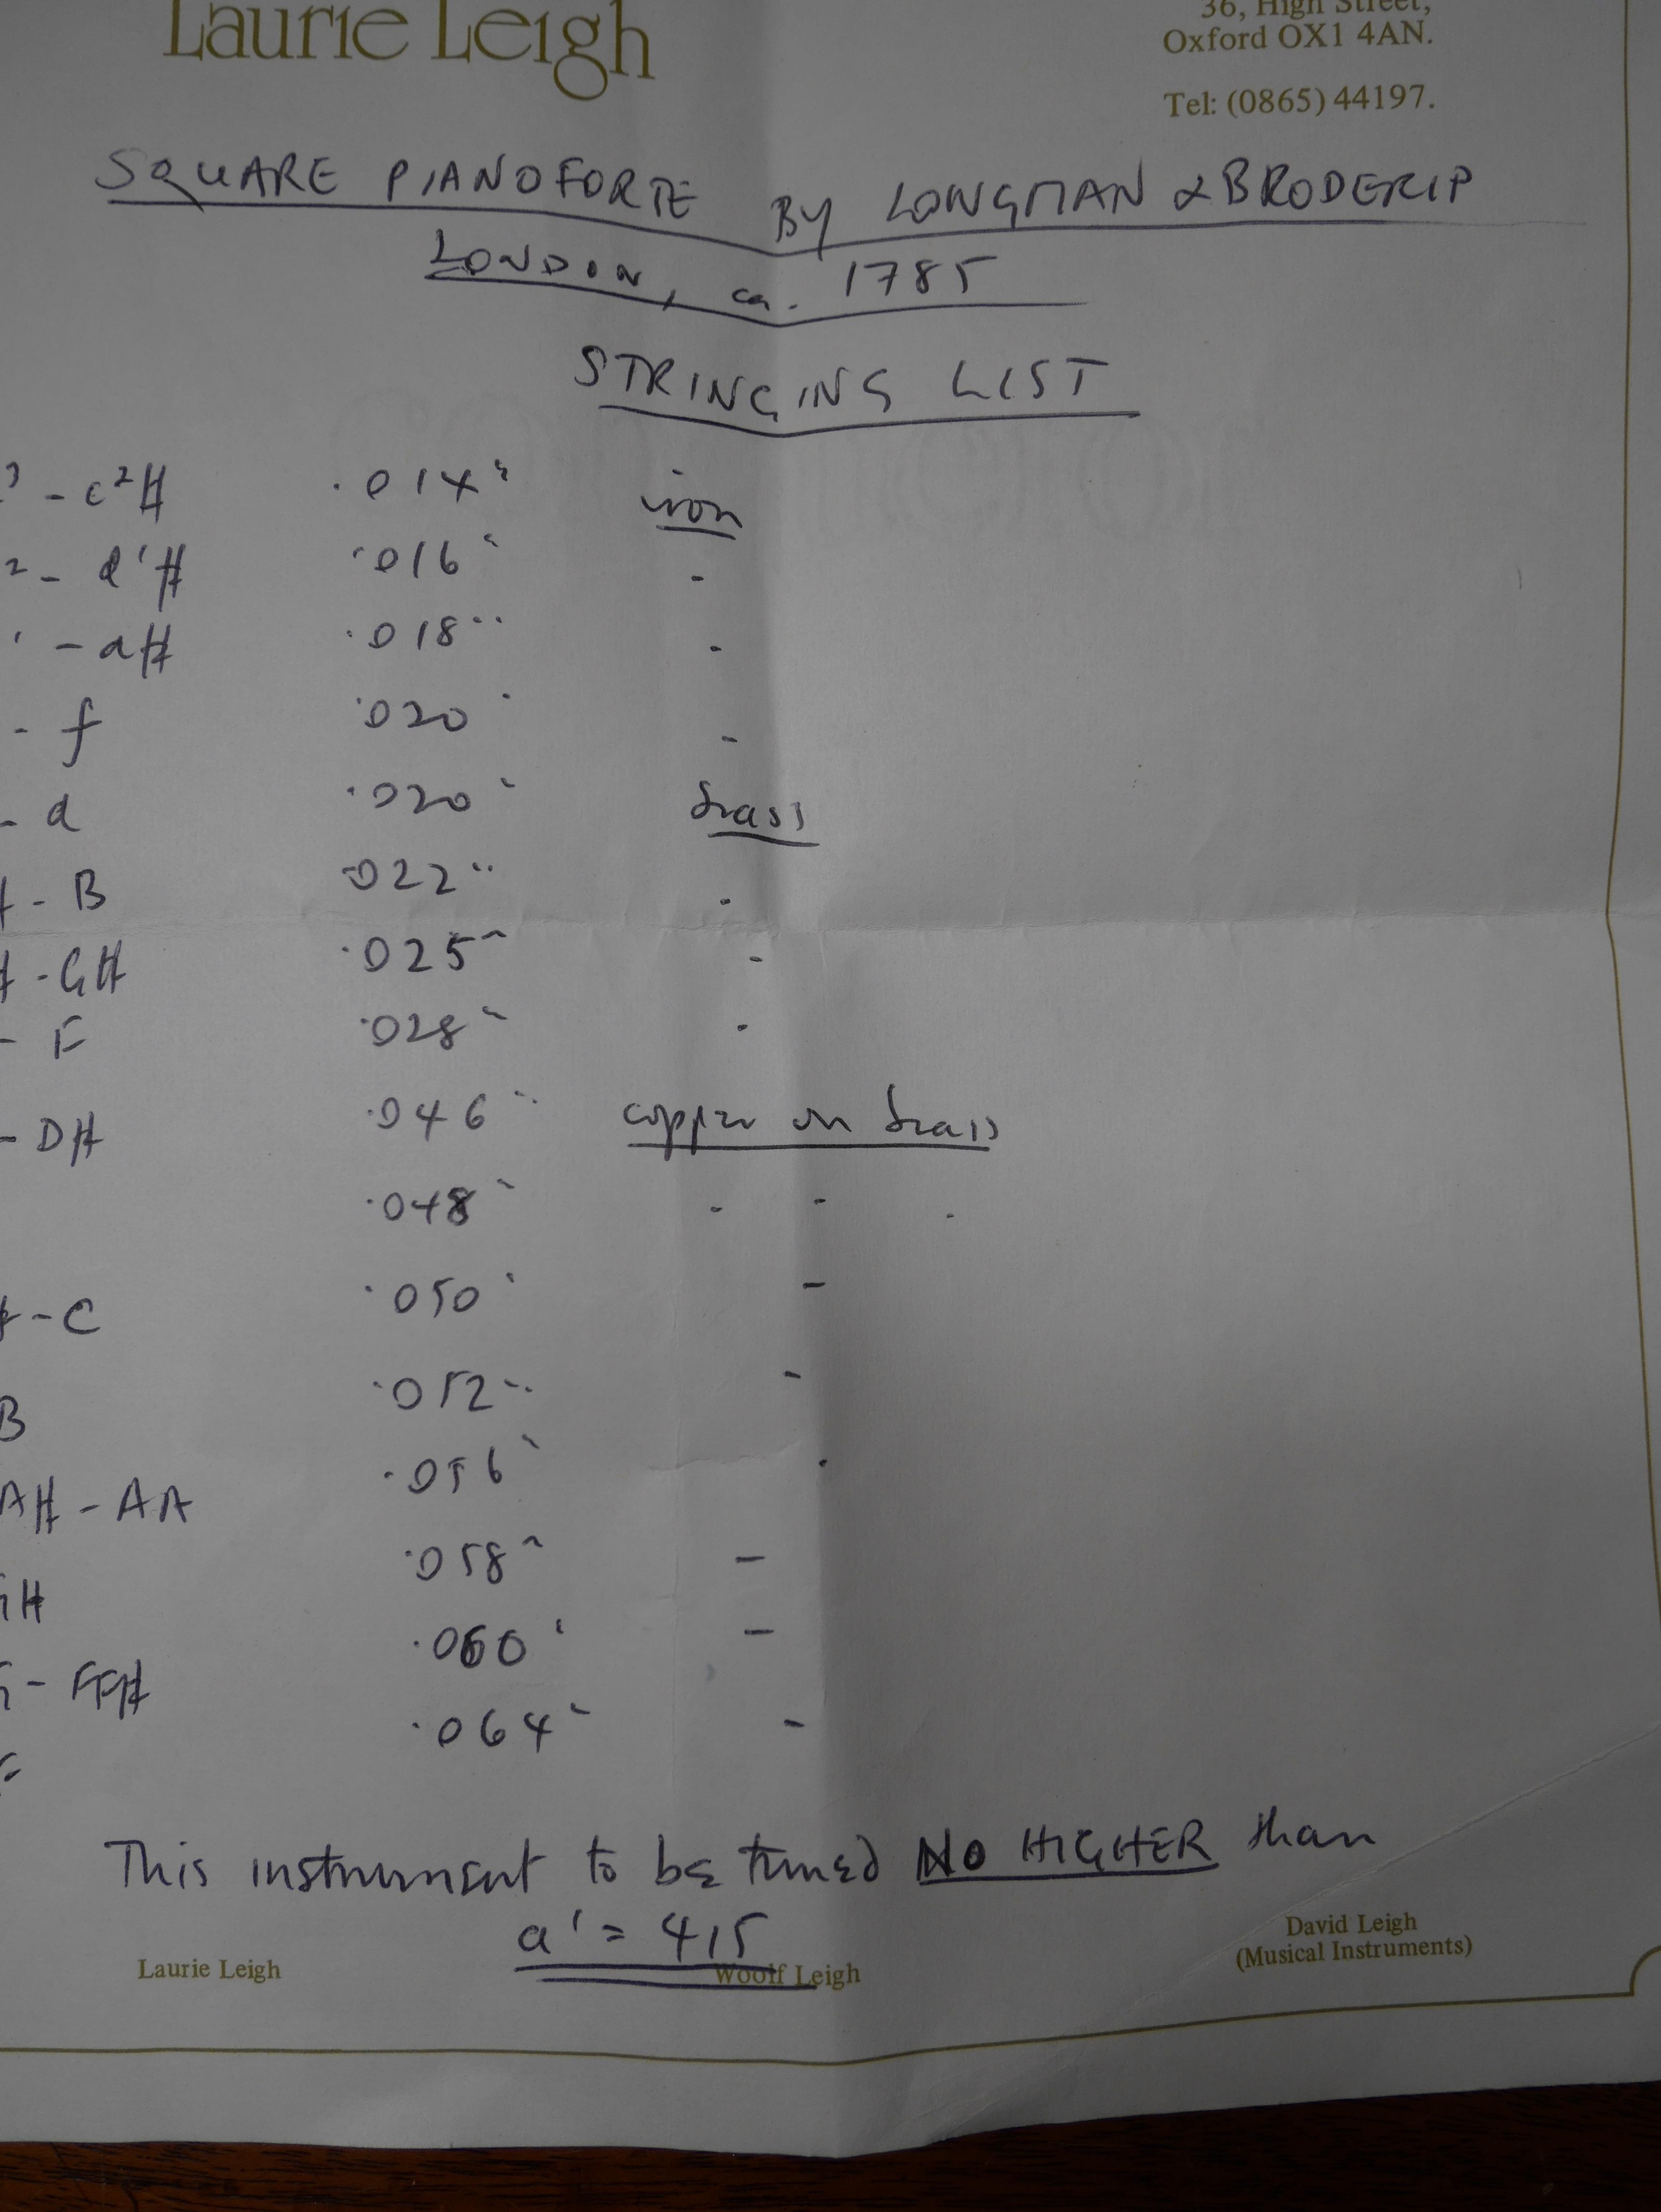 Laurie Leigh
36, High Street,
Oxford OX1 4AN.
Tel: (0865) 44197.
SQUARE PIANOFORTE BY LONGMAN & BRODERIP
LONDON, ca. 1785
STRINGING LIST
³ - c²# .014" iron
² - d'# .016" "
' - a# .018" "
- f .020" "
- d .020" brass
# - B .022" "
# - G# .025" "
- F .028" "
- D# .046" copper on brass
.048" " " "
# - C .050" "
B .052" "
A# - AA .056" "
G# .058" "
G - FF# .060" "
F .064" "
This instrument to be tuned NO HIGHER than
a' = 415
Laurie Leigh
Woolf Leigh
David Leigh
(Musical Instruments)